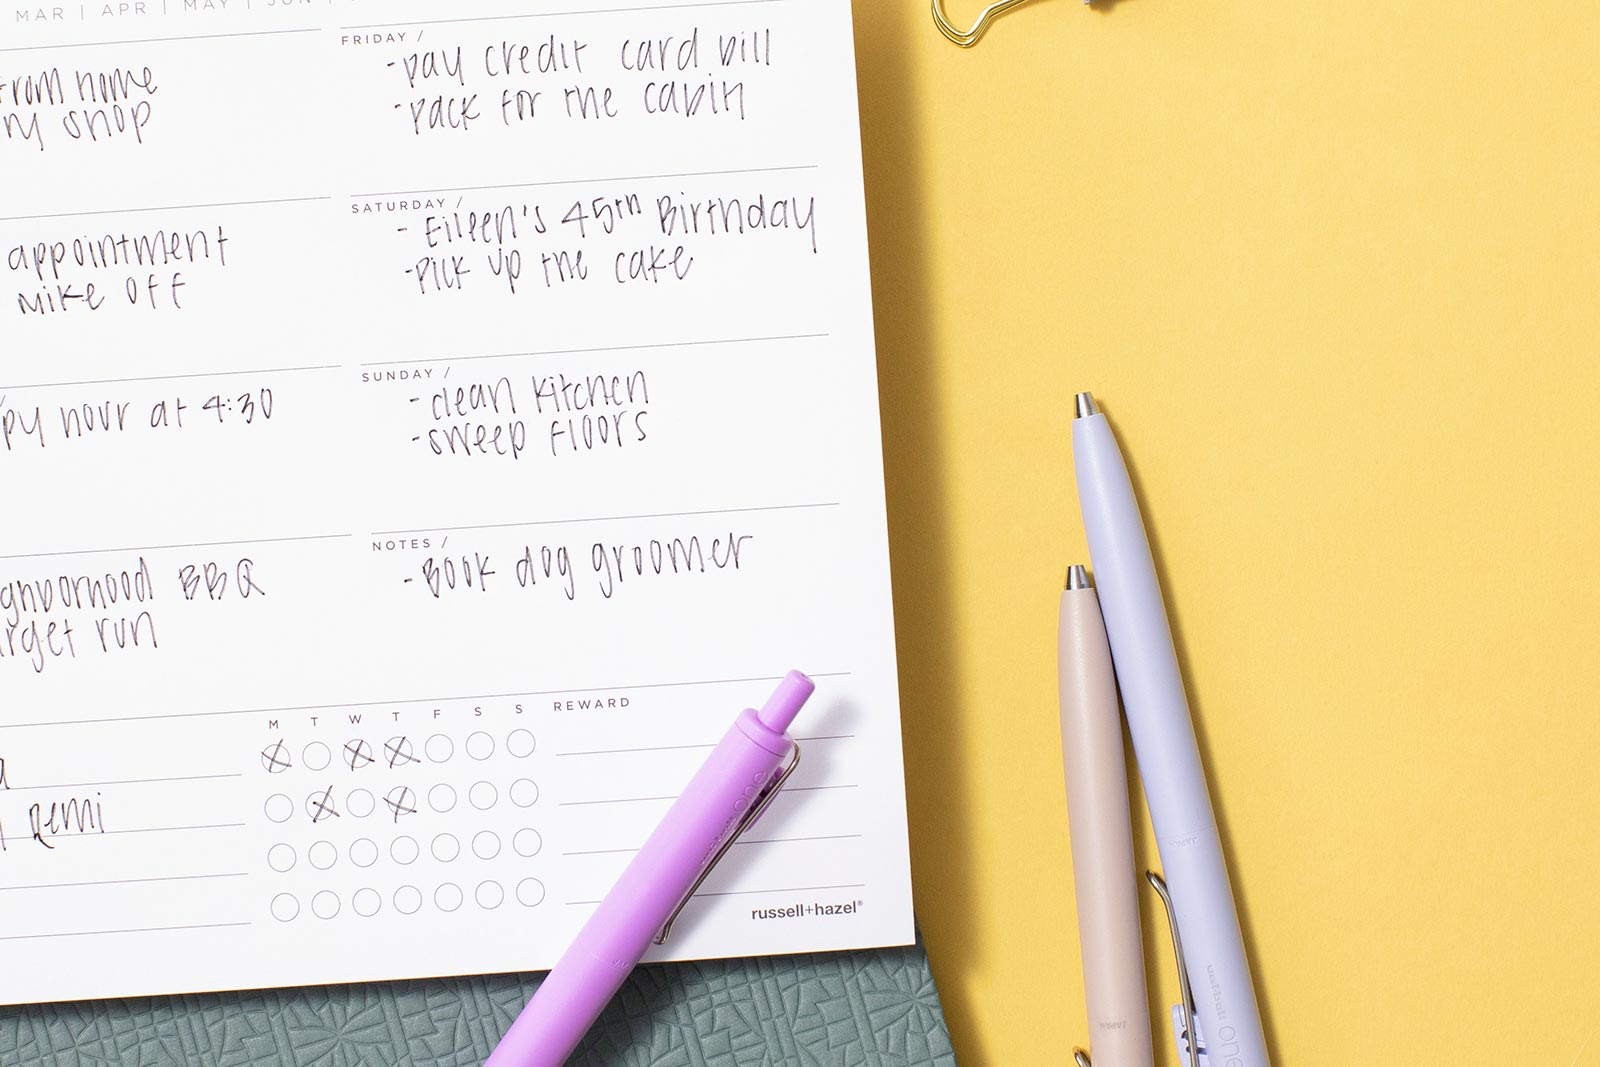 MAR | APR | MAY | JUN |
from home
ny shop
appointment
mike off
ppy hour at 4:30
ighborhood BBQ
arget run
FRIDAY /
-pay credit card bill
-pack for the cabin
SATURDAY /
- Eileen's 45th Birthday
-pick up the cake
SUNDAY /
- clean kitchen
-sweep floors
NOTES /
-Book dog groomer
M T W T F S S REWARD
a
remi
russell+hazel®
one
JAPAN
JAPAN
one
JAPAN